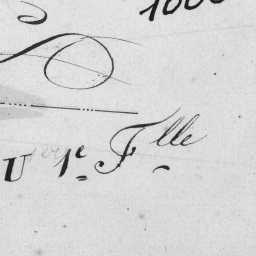 1000
U 1e Flle